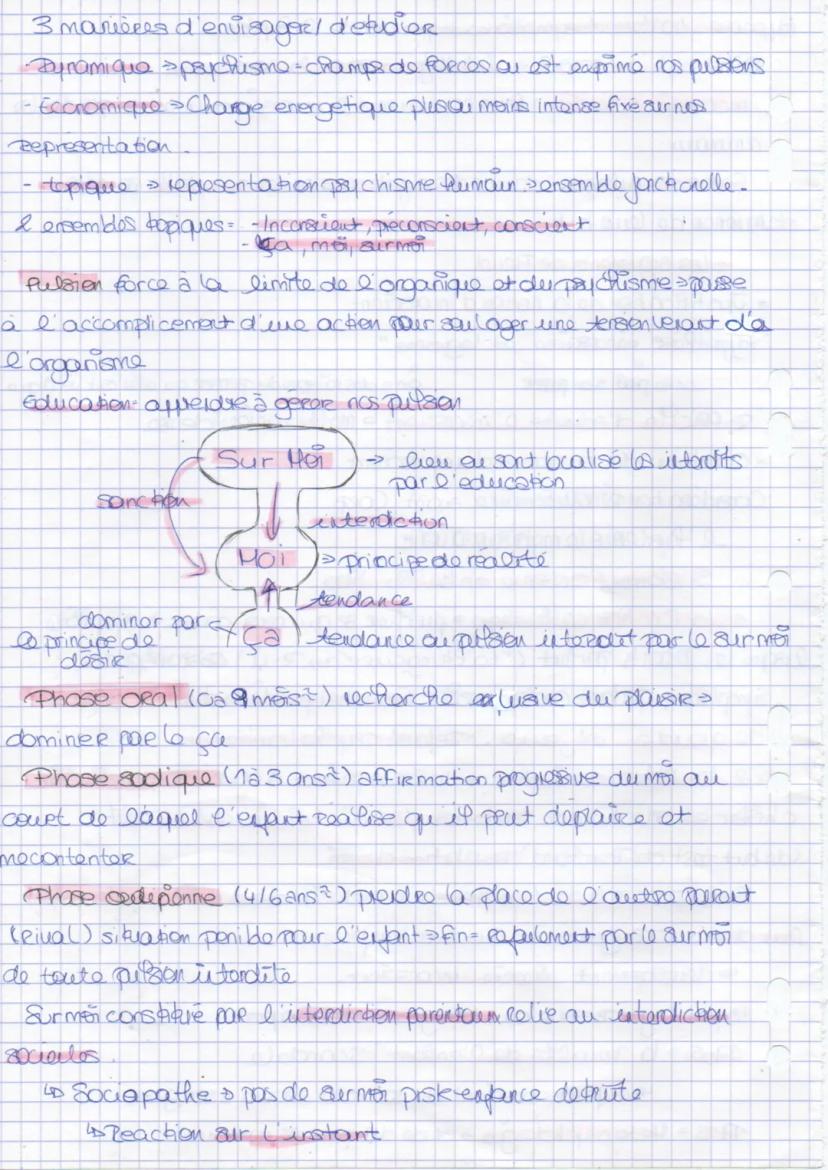 3 manières d'envisager/d'etudier
- Dynamique => psychisme = champs de forces ou est exprimé nos pulsions
- Economique => Charge energetique plus ou moins intense fixé sur nos
représentation.
- topique => representation psychisme humain => ensemble fonctionelle.
2 ensembles topiques = - Inconscient, préconscient, conscient
- Ça, moi, surmoi
Pulsion force à la limite de l'organique et du psychisme => pousse
à l'accomplicement d'une action pour soulager une tension venant d'a
l'organisme
Education = apprendre à gérer nos pulsion
Sur Moi -> lieu ou sont localisé les interdits
par l'education
sanction
interdiction
Moi => principe de réalité
tendance
dominer par
le principe de
désir
Ça tendance ou pulsion interdit par le sur moi
Phase oral (0 à 9 mois ~) recherche exclusive du plaisir =>
dominer par le ça
Phase sadique (1 à 3 ans ~) affirmation progressive du moi au
court de laquel l'enfant réalise qu'il peut déplaire et
mecontenter
Phase oedipienne (4/6 ans ~) prendre la place de l'autre parent
(Rival) situation penible pour l'enfant => fin = refoulement par le surmoi
de toute pulsion interdite
Surmoi constitué par l'interdiction parentaux relie au interdiction
sociales.
↳ Sociopathe => pas de surmoi enfance detruite
↳ Reaction sur l'instant